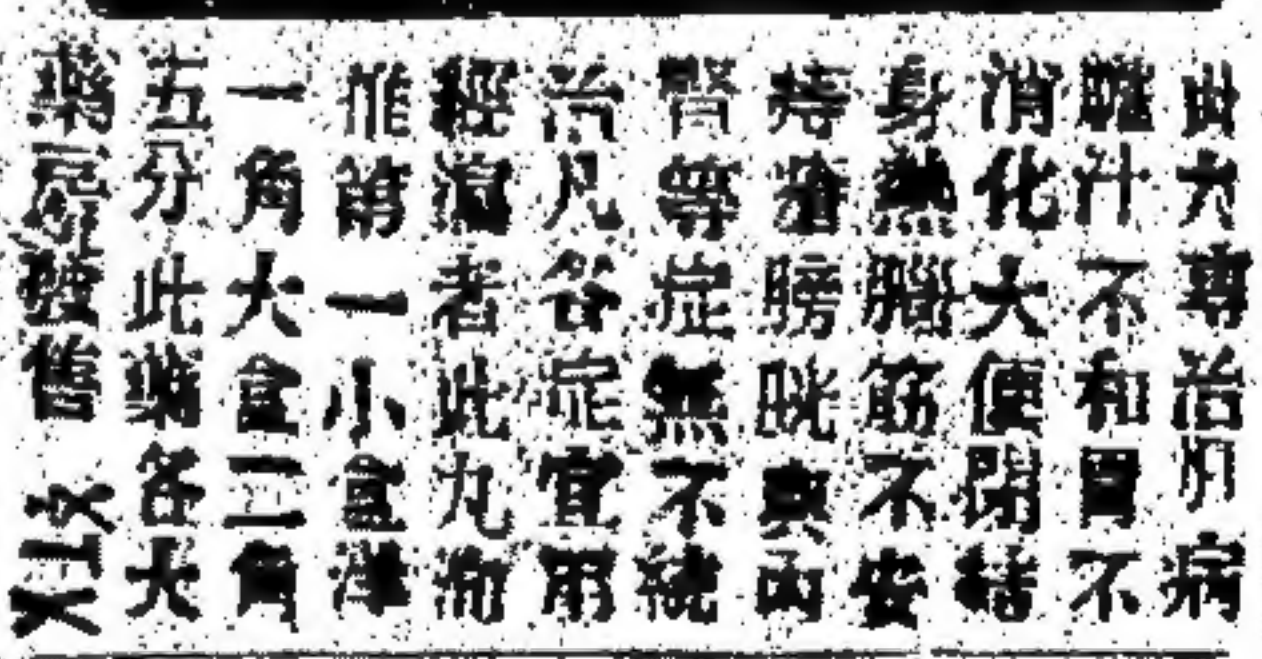 此丸專治肝病
膽汁不和胃不
消化大便閉結
身熱腦筋不安
痔瘡膀胱與內
腎等症無不統
治凡各症宜用
輕瀉者此丸
惟第一小盒洋
一角大盒二角
五分此藥各大
藥房發售